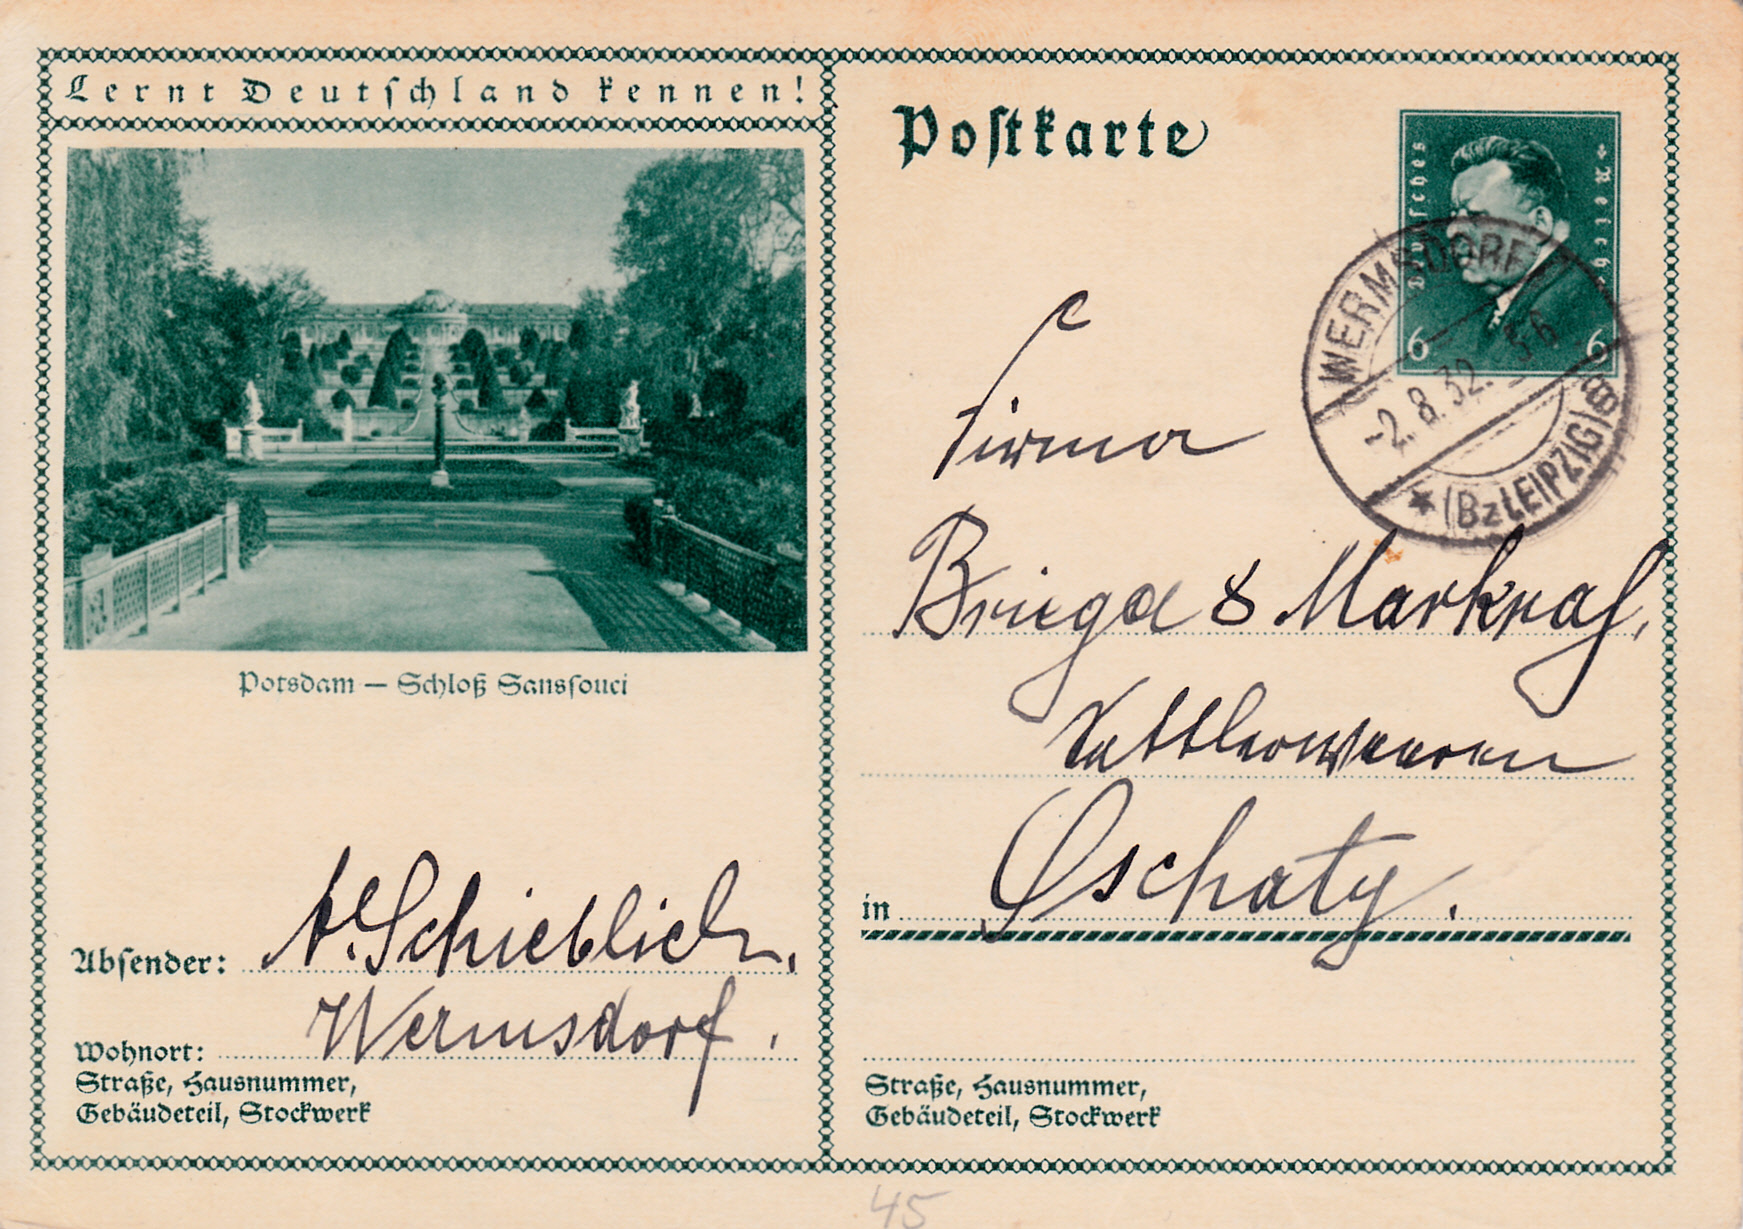 Lernt Deutschland kennen!
Potsdam — Schloß Sanssouci
Absender: A. Schieblich,
Wohnort: Wermsdorf.
Straße, Hausnummer,
Gebäudeteil, Stockwerk
Postkarte
Deutsches Reich
6 6
WERMSDORF
-2.8.32. 5-6
* (Bz LEIPZIG) 8
Firma
& Markgraf,
Sattlerwaaren
in Oschatz.
Straße, Hausnummer,
Gebäudeteil, Stockwerk
45